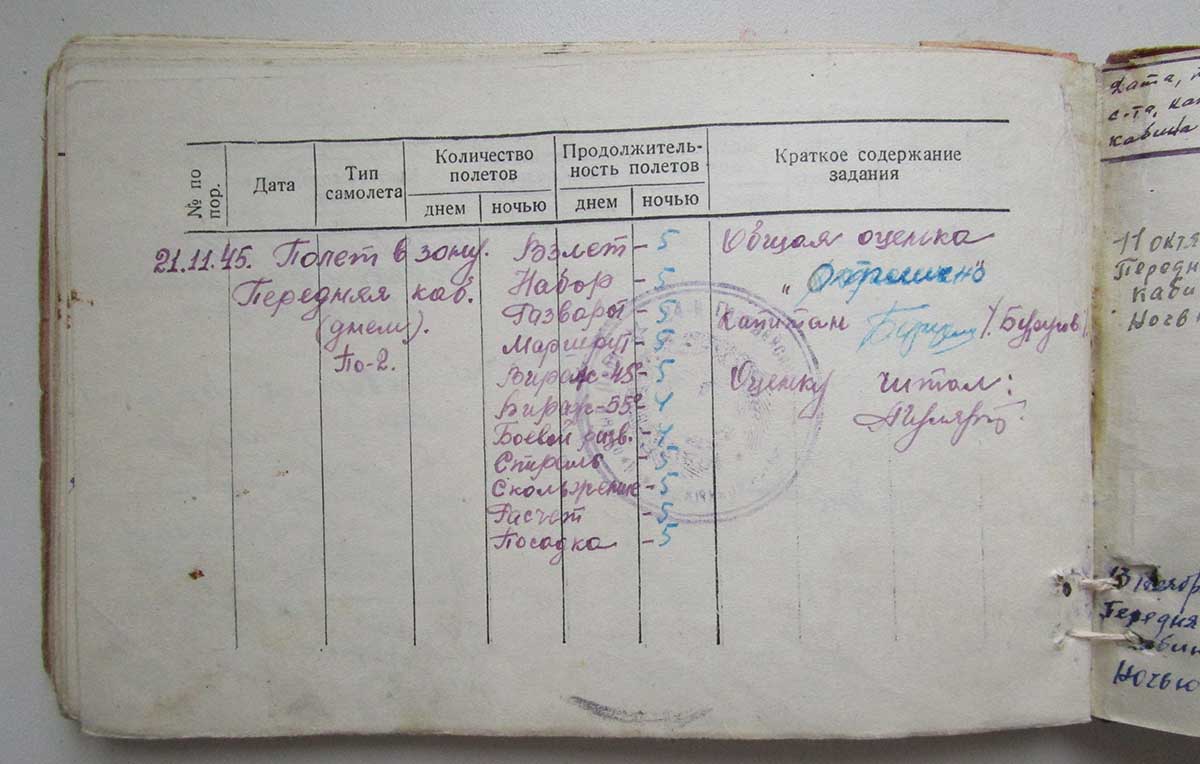 № по пор.
Дата
Тип самолета
Количество полетов
днем
ночью
Продолжитель-
ность полетов
днем
ночью
Краткое содержание
задания
21.11.45. Полет в зону.
Передняя каб.
(днем).
По-2.
Взлет – 5
Набор – 5
Разворот – 5
Маршрут – 5
Вираж-45° – 5
Вираж-55° – 4
Боевой разв. – 4
Спираль – 5
Скольжение – 5
Расчет – 5
Посадка – 5
Общая оценка
"Отлично"
Капитан /Буругов/
Оценку читал:
Дата,
с-та,
кабина
11 октя
Передн
каби
Ночь
13 ноябр
Передня
кабин
Ночью